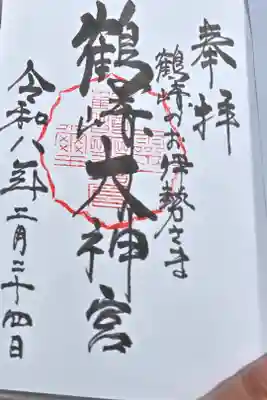 奉拝
鶴のお伊勢さま
鶴大神宮
令和八年二月二十四日